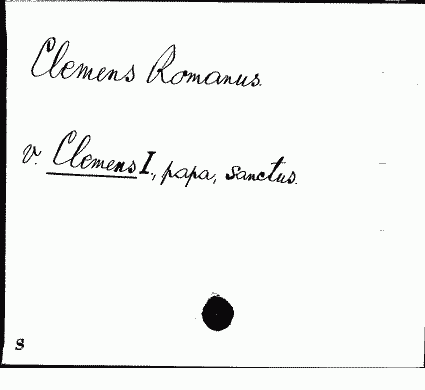 Clemens Romanus.
v. Clemens I., papa, sanctus.
s